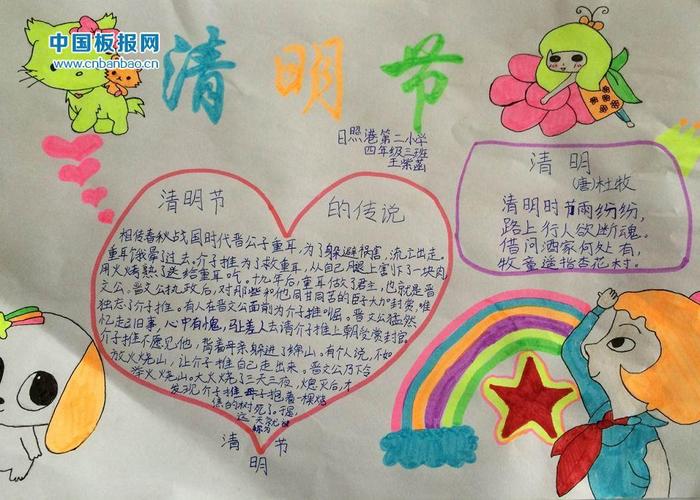 中国板报网
www.cnbanbao.cn
清明节
日照港第二小学
四年级三班
王紫菡
清明节 的传说
相传春秋战国时代晋公子重耳,为了躲避祸害,流亡出走。
重耳饿晕了过去。介子推为了救重耳,从自己腿上割下了一块肉
用火烤熟了送给重耳吃。十九年后,重耳做了君主,也就是晋
文公。晋文公执政后,对那些和他同甘共苦的臣子大加封赏,唯
独忘了介子推。有人在晋文公面前为介子推叫屈。晋文公猛然
忆起旧事,心中有愧,马上差人去请介子推上朝受赏封官。
介子推不愿见他,背着母亲躲进了绵山。有人说,不如
放火烧山,让介子推自己走出来。晋文公乃下令
举火烧山。大火烧了三天三夜,熄灭后,才
发现介子推母子抱着一棵烧
焦的树死了。
这一天就
清 节
明
清明
(唐)杜牧
清明时节雨纷纷,
路上行人欲断魂。
借问酒家何处有,
牧童遥指杏花村。